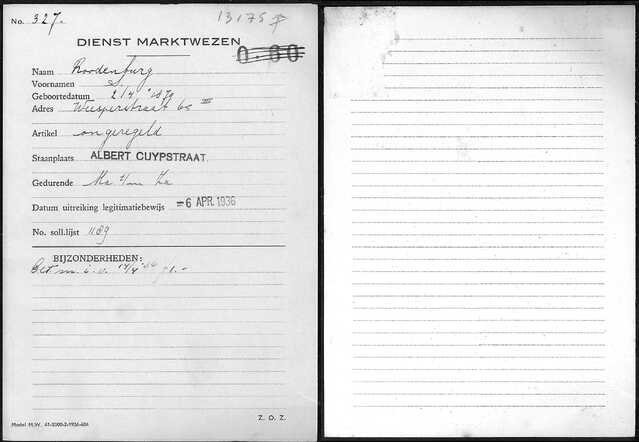 No. 327.
13175
DIENST MARKTWEZEN
0.60
Naam Roodenburg
Voornamen S
Geboortedatum 2/4 '1879
Adres Weesperstraat 65 III
Artikel ongeregeld
Staanplaats ALBERT CUYPSTRAAT.
Gedurende Ma t/m Za
Datum uitreiking legitimatiebewijs =6 APR. 1936
No. soll.lijst 1189
BIJZONDERHEDEN:
Bet m. i. v. 14/4 '36 f 1.-
Z. O. Z.
Model M.W. 61-2000-2-1936-606